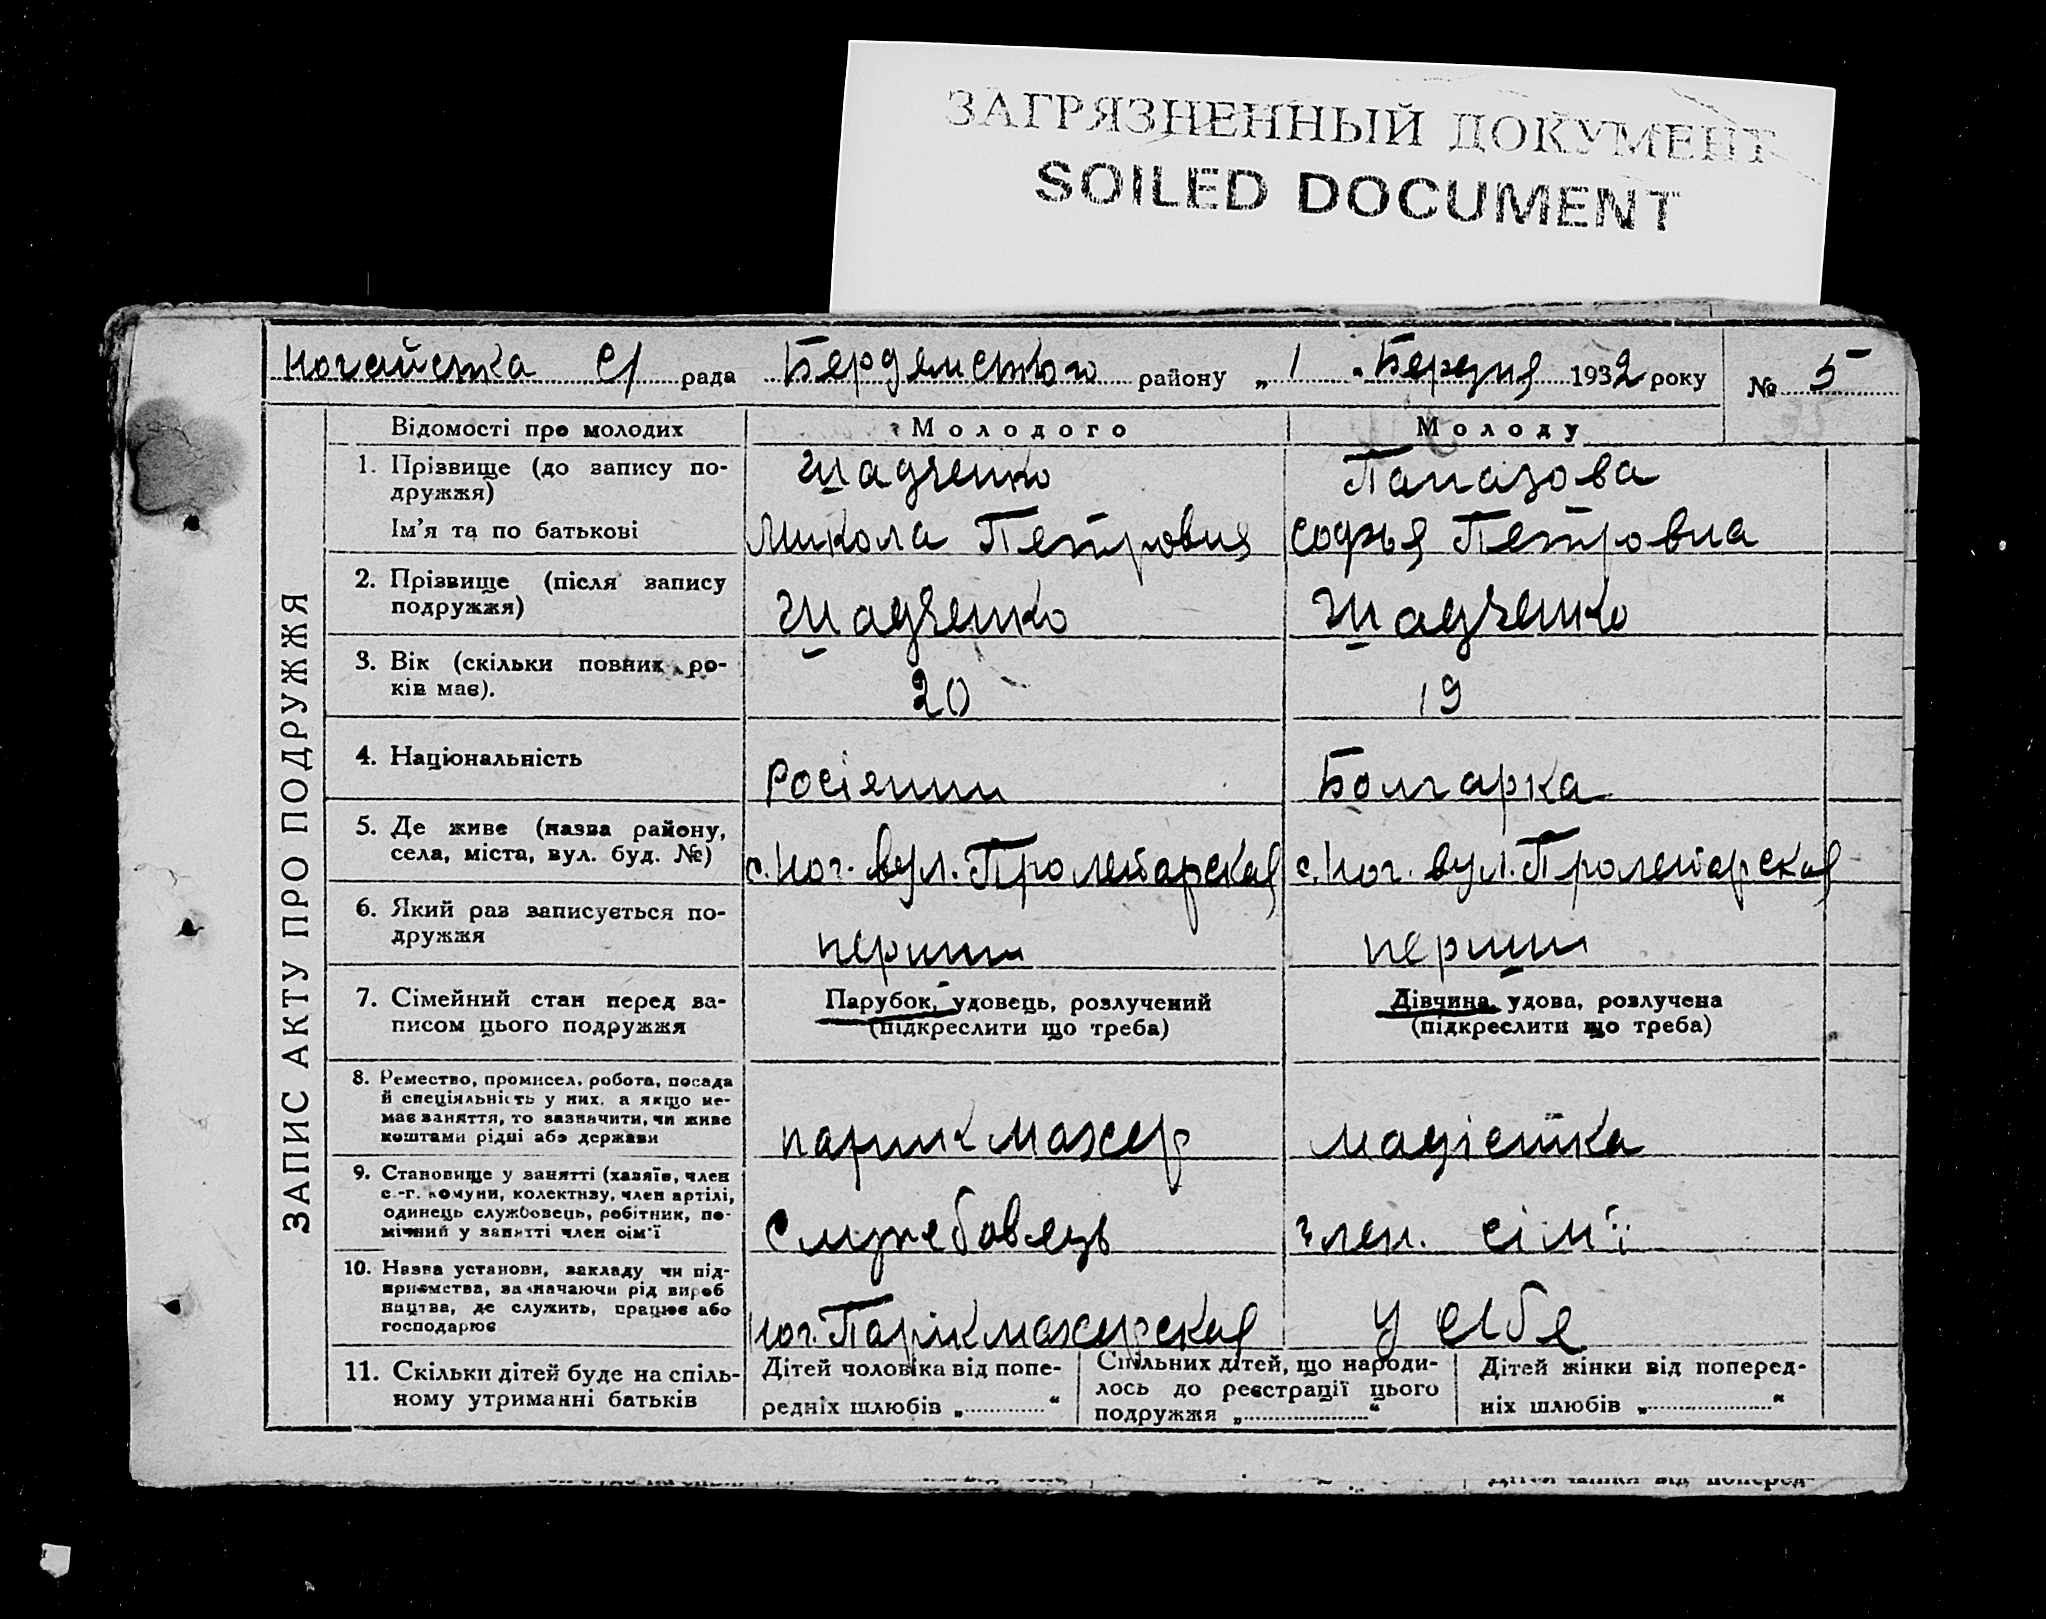 ЗАГРЯЗНЕННЫЙ ДОКУМЕНТ
SOILED DOCUMENT
Ногайська С/ рада Бердянського району „ 1 " Березня 1932 року № 5
ЗАПИС АКТУ ПРО ПОДРУЖЖЯ
Відомості про молодих Молодого Молоду
1. Прізвище (до запису по-
дружжя)
Шадченко Папазова
Ім'я та по батькові Микола Петрович Софья Петровна
2. Прізвище (після запису
подружжя)
Шадченко Шадченко
3. Вік (скільки повних ро-
ків має).
20 19
4. Національність Росіянин Болгарка
5. Де живе (назва району,
села, міста, вул. буд. №)
с. Ног. вул. Пролетарская с. Ног. вул. Пролетарская
6. Який раз записується по-
дружжя
перший перший
7. Сімейний стан перед за-
писом цього подружжя
Парубок, удовець, розлучений
(підкреслити що треба)
Дівчина, удова, розлучена
(підкреслити що треба)
8. Ремество, промисел, робота, посада
й спеціяльність у них, а якщо не-
має заняття, то зазначити, чи живе
коштами рідні або держави
парикмахер модістка
9. Становище у занятті (хазяїн, член
с.-г. комуни, колективу, член артілі,
одинець службовець, робітник, по-
мічний у занятті член сім'ї
Служебовець член. сім'ї
10. Назва установи, закладу чи під-
приємства, зазначаючи рід вироб
ництва, де служить, працює або
господарює
Ног. Парікмахерская у себе
11. Скільки дітей буде на спіль-
ному утриманні батьків
Дітей чоловіка від попе-
редніх шлюбів „ "
Спільних дітей, що народи-
лось до реєстрації цього
подружжя „ "
Дітей жінки від поперед-
ніх шлюбів „ "
Дітей жінки від поперед-